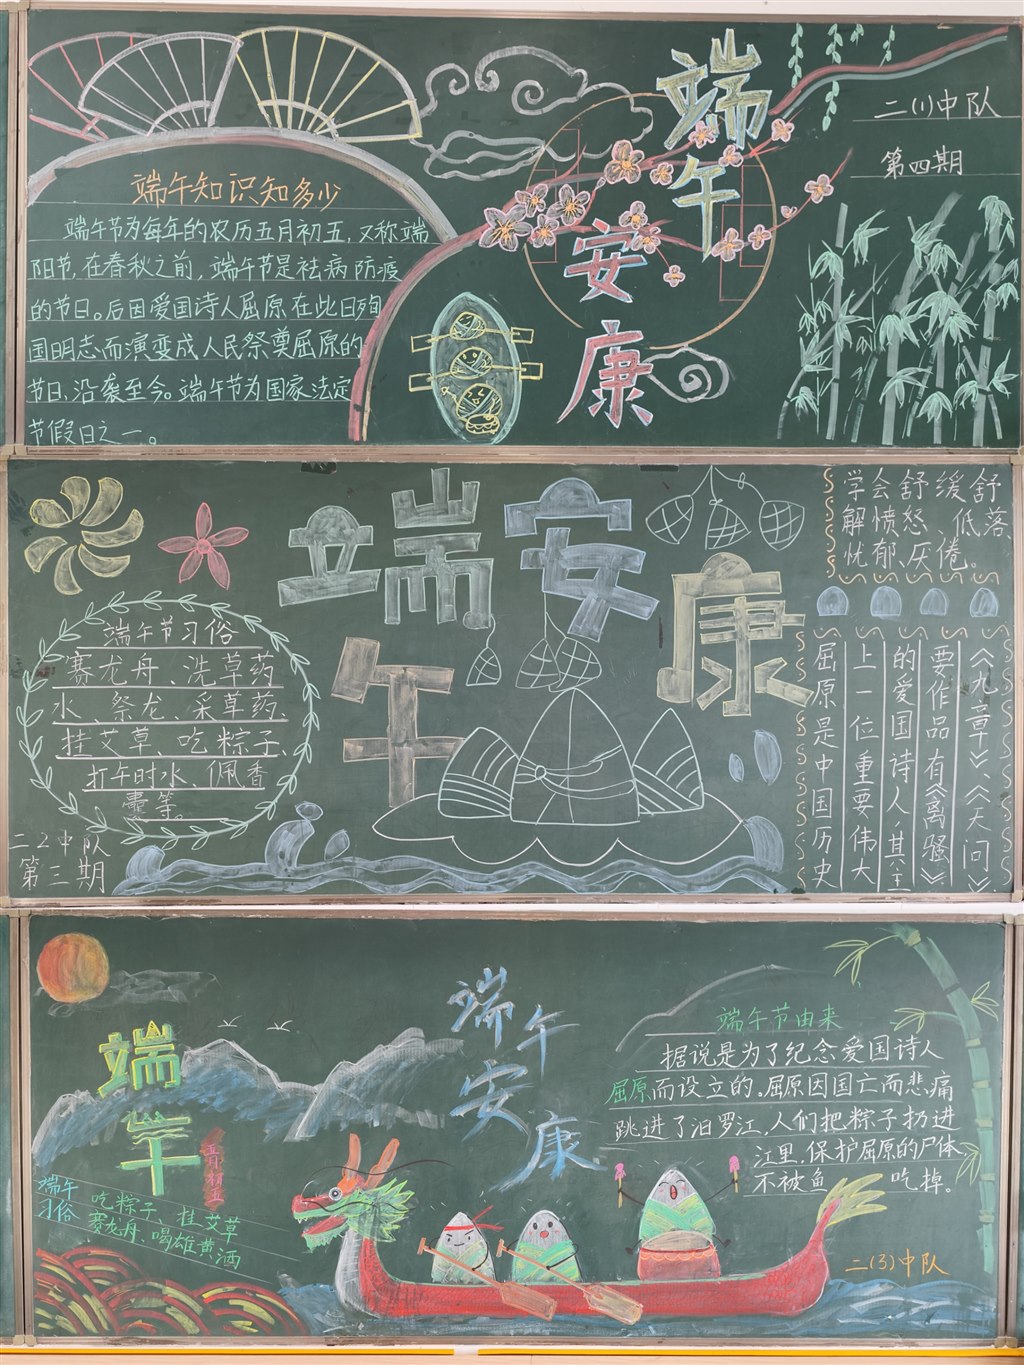 端午安康
二(1)中队
第四期
端午知识知多少
端午节为每年的农历五月初五，又称端
阳节，在春秋之前，端午节是祛病防疫
的节日。后因爱国诗人屈原在此日殉
国明志而演变成人民祭奠屈原的
节日，沿袭至今。端午节为国家法定
节假日之一。
端午安康
端午节习俗
赛龙舟、洗草药
水、祭龙、采草药、
挂艾草、吃粽子、
打午时水、佩香
囊等。
二2中队
第三期
学会舒缓舒
解愤怒、低落、
忧郁、厌倦。
屈原是中国历史
上一位重要伟大
的爱国诗人，其主
要作品有《离骚》
《九章》《天问》
端午
端午
习俗
吃粽子、挂艾草
赛龙舟、喝雄黄酒
端午
安康
端午节由来
据说是为了纪念爱国诗人
屈原而设立的。屈原因国亡而悲痛
跳进了汨罗江，人们把粽子扔进
江里，保护屈原的尸体，
不被鱼 吃掉。
二(3)中队